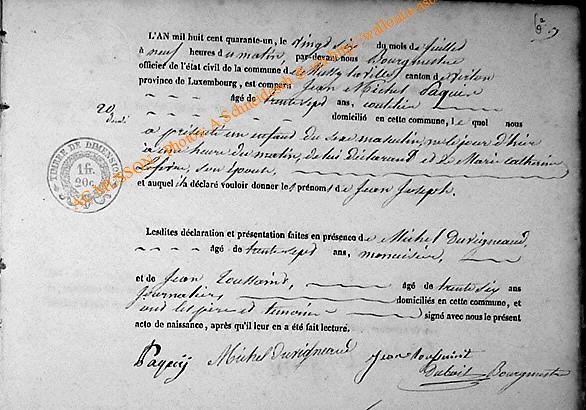 L'AN mil huit cent quarante-un, le vingt six du mois de juillet
à neuf heures du matin, par-devant nous Bourgmestre
officier de l'état civil de la commune de Mussy la ville, canton de Virton
province de Luxembourg, est comparu Jean Michel Paquis
âgé de trente sept ans,
domicilié en cette commune, le quel nous
a présenté un enfant du sexe masculin, né le jour d'hier
à une heure du matin, de lui déclarant et de Marie Catherine
son épouse,
et auquel il a déclaré vouloir donner les prénoms de Jean Joseph.
Lesdites déclaration et présentation faites en présence de Michel Duvigneaud
âgé de trente sept ans, menuisier,
et de Jean Toussaint, âgé de trente six ans
journalier, domiciliés en cette commune, et
ont les père et témoins signé avec nous le présent
acte de naissance, après qu'il leur en a été fait lecture.
Paquis Michel Duvigneaud Jean Toussaint
Bourgmestre
20
TIMBRE DE DIMENSION
1 fr.
20 c.